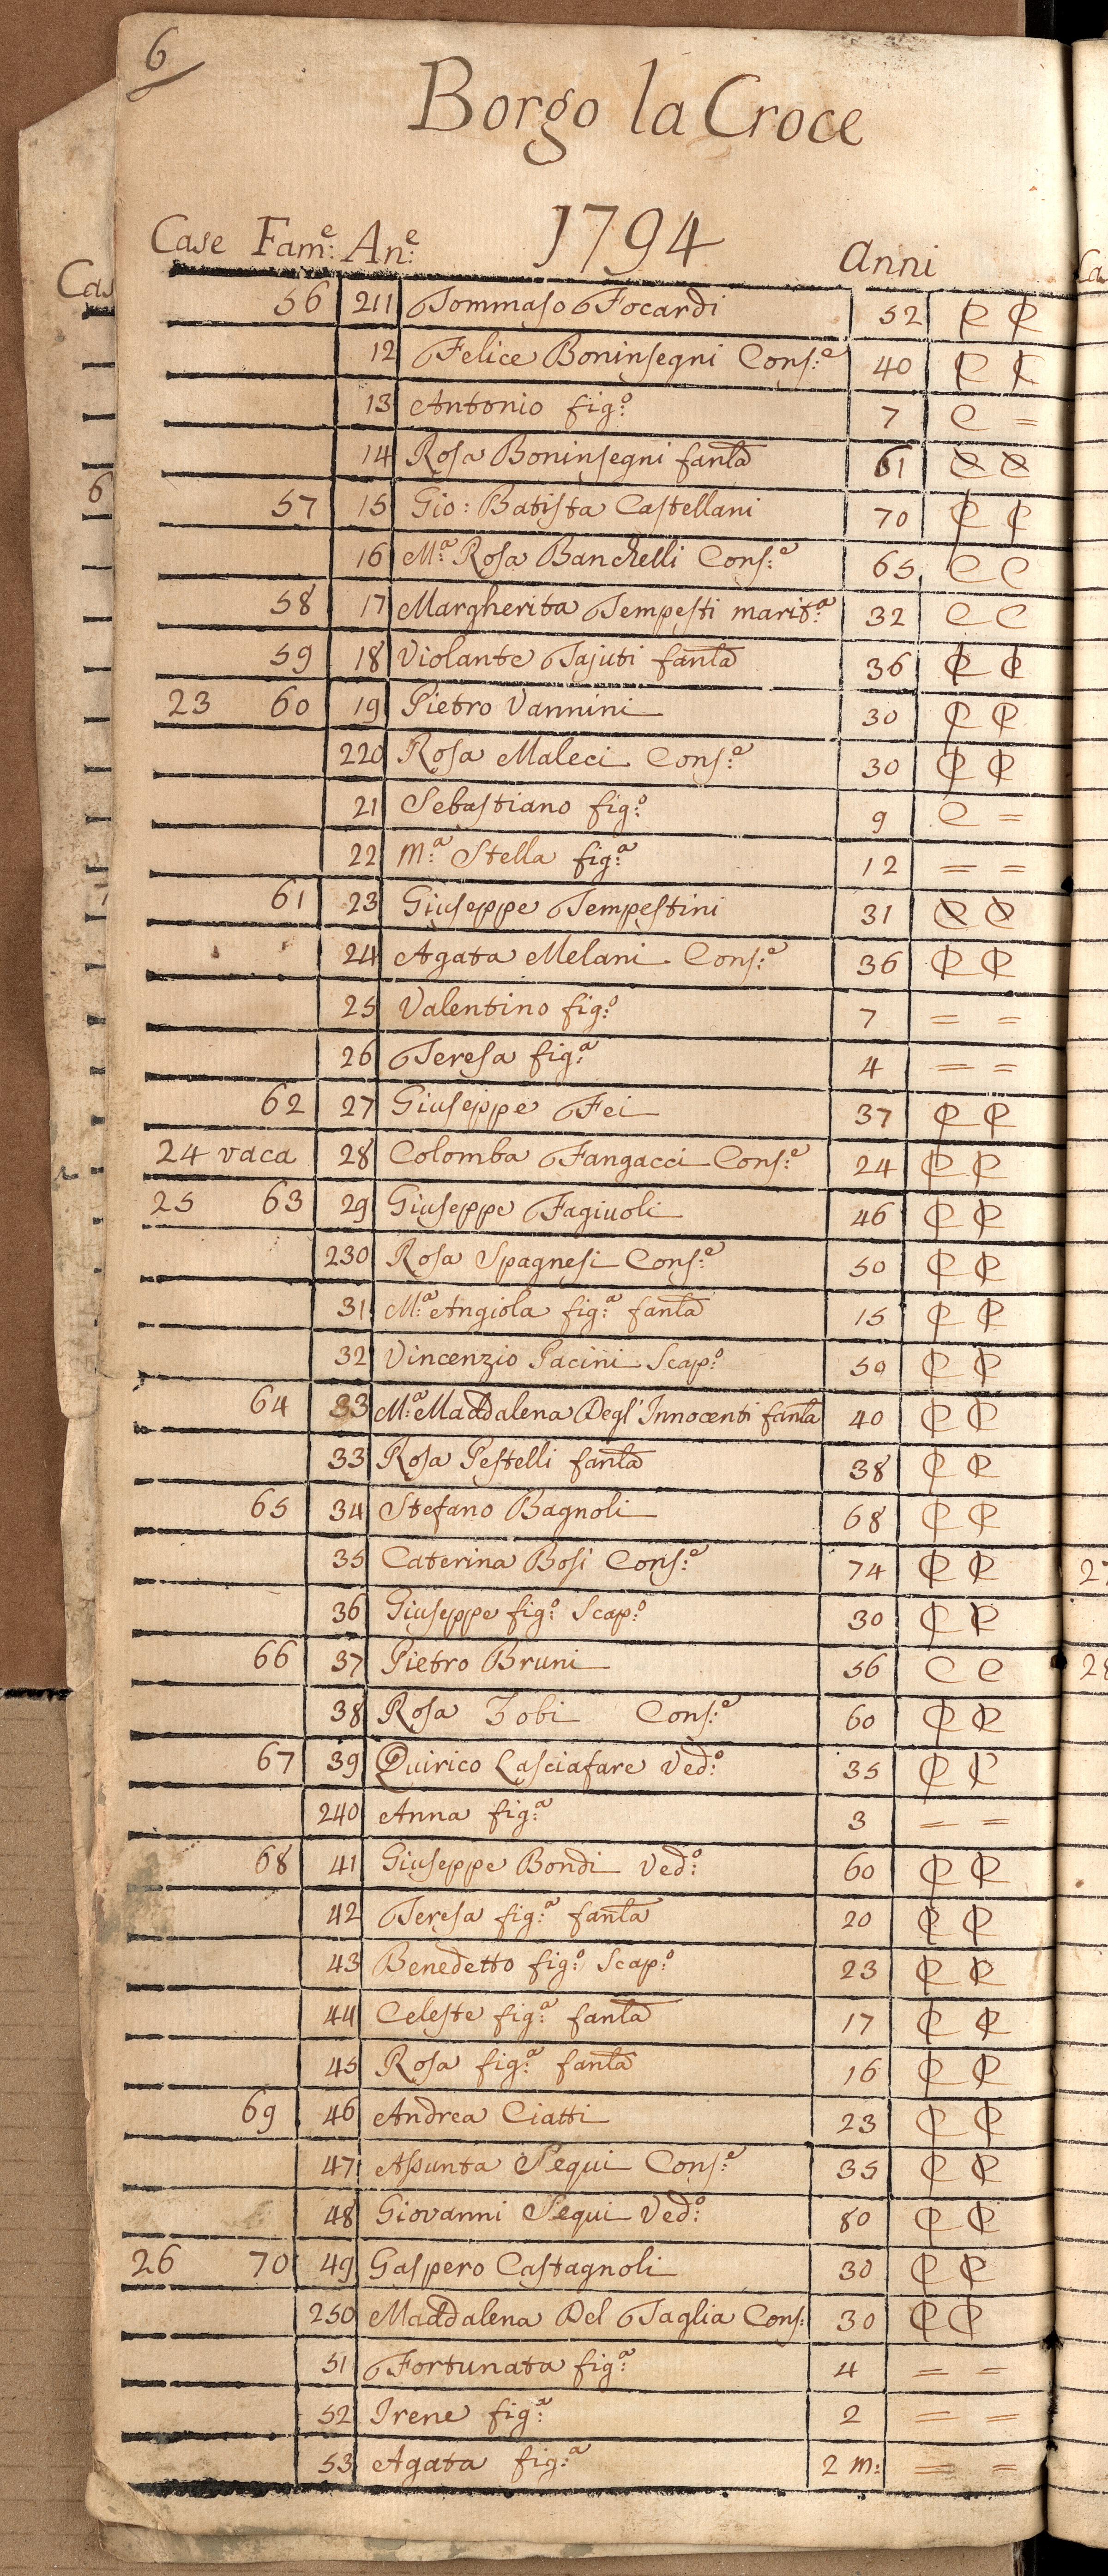 6
Borgo la Croce
Case Fam:e An:e 1794 anni
56 211 Tommaso Focardi 52 C C
12 Felice Boninsegni Cons:e 40 C C
13 Antonio fig:o 7 C =
14 Rosa Boninsegni fanla 61 C C
57 15 Gio: Batista Castellani 70 C C
16 M:a Rosa Banchelli Cons:e 65 C C
58 17 Margherita Tempesti marit:a 32 C C
59 18 Violante Tajuti fanla 36 C C
23 60 19 Pietro Vannini 30 C C
220 Rosa Maleci Cons:e 30 C C
21 Sebastiano fig:o 9 C =
22 M:a Stella fig:a 12 = =
61 23 Giuseppe Tempestini 31 C C
24 Agata Melani Cons:e 36 C C
25 Valentino fig:o 7 = =
26 Teresa fig:a 4 = =
62 27 Giuseppe Fei 37 C C
24 vaca 28 Colomba Fangacci Cons:e 24 C C
25 63 29 Giuseppe Fagiuoli 46 C C
230 Rosa Spagnesi Cons:e 50 C C
31 M:a Angiola fig:a fanla 15 C C
32 Vincenzio Pacini Scap:o 50 C C
64 33 M:a Maddalena Degl'Innocenti fanla 40 C C
33 Rosa Pestelli fanla 38 C C
65 34 Stefano Bagnoli 68 C C
35 Caterina Bosi Cons:e 74 C C
36 Giuseppe fig:o Scap:o 30 C C
66 37 Pietro Bruni 56 C C
38 Rosa Zobi Cons:e 60 C C
67 39 Quirico Lasciafare Ved:o 35 C C
240 Anna fig:a 3 = =
68 41 Giuseppe Bondi Ved:o 60 C C
42 Teresa fig:a fanla 20 C C
43 Benedetto fig:o Scap:o 23 C C
44 Celeste fig:a fanla 17 C C
45 Rosa fig:a fanla 16 C C
69 46 Andrea Ciatti 23 C C
47 Asunta Pequi Cons:e 35 C C
48 Giovanni Pequi Ved:o 80 C C
26 70 49 Gaspero Castagnoli 30 C C
250 Maddalena Del Taglia Cons: 30 C C
51 Fortunata fig:a 4 = =
52 Irene fig:a 2 = =
53 Agata fig:a 2 m: = =